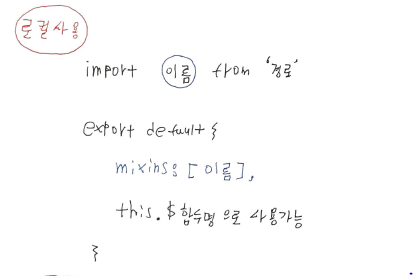 로컬사용
import 이름 from '경로'
export default {
mixins: [이름],
this.$함수명 으로 사용가능
}